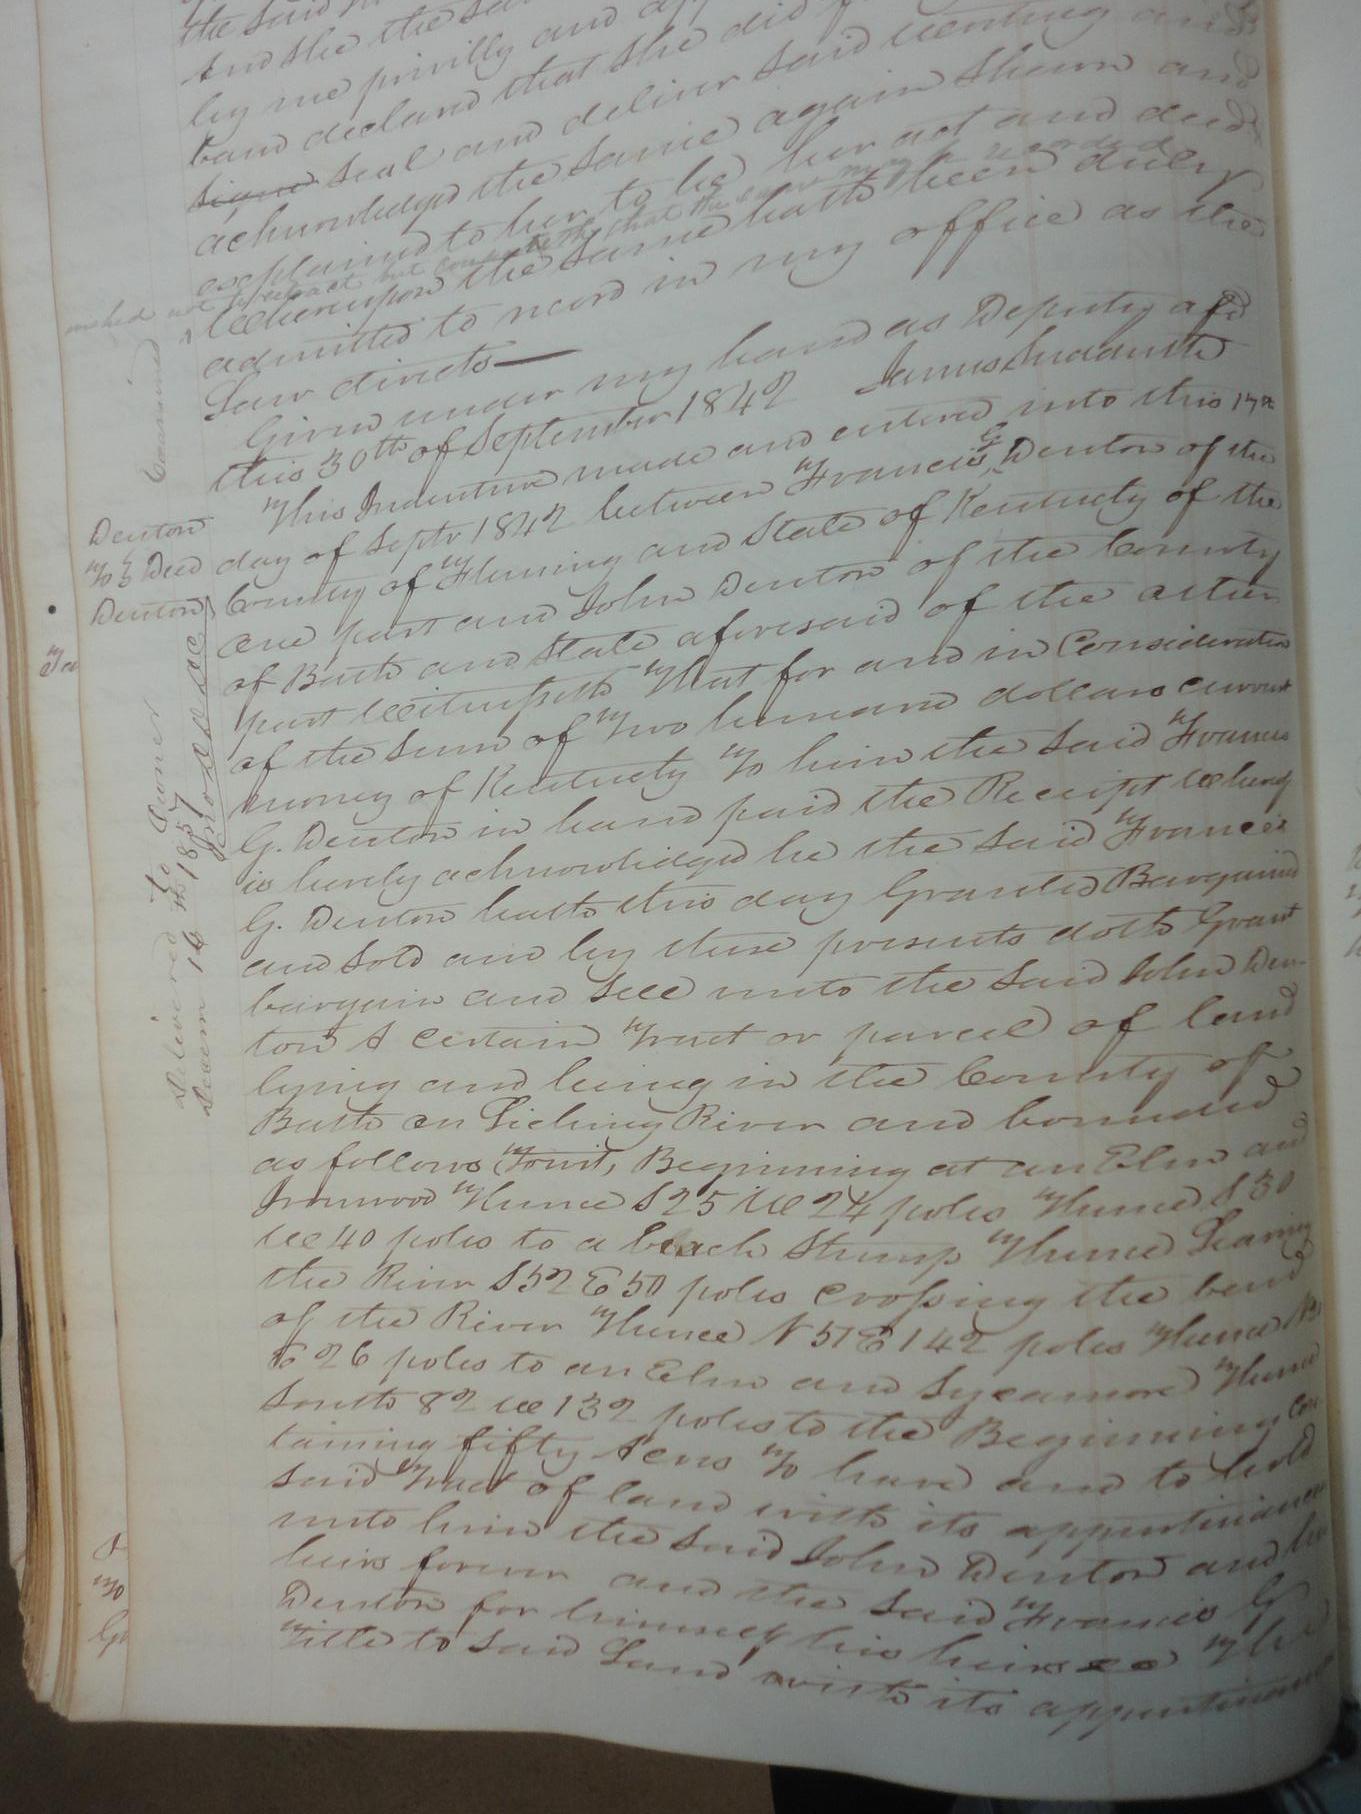 the said
And she the said
by me privilly and
band declared that she did
sign seal and deliver said writing and
acknowledged the same again shewn and
explained to her to be her act and deed
wished not to retract but consented that the same may be recorded
Whereupon the same hath been duly
admitted to record in my office as the
Law directs —
Given under my hand as Deputy afd
this 30th of September 1842 James Sudduth
Examined
Denton
To } Deed
Denton
This Indenture made and entered into this 17th
day of Septr 1842 between Francis G Denton of the
County of Fleming and State of Kentucky of the
one part and John Denton of the County
of Bath and State aforesaid of the other
part Witnesseth That for and in Consideration
of the Sum of Two hundred dollars current
money of Kentucky To him the Said Francis
G. Denton in hand paid the Receipt whereof
is hereby acknowledged he the Said Francis
G. Denton hath this day Granted Bargained
and Sold and by these presents doth Grant
bargain and Sell unto the Said John Den-
ton A certain Tract or parcel of land
lying and being in the County of
Bath on Licking River and bounded
as follows Towit, Beginning at an Elm and
Ironwood Thence S 25 W 24 poles Thence S 30
W 40 poles to a beach Stump Thence Leaving
the River S 52 E 50 poles Crossing the bend
of the River Thence N 51 E 142 poles Thence N
E 26 poles to an Elm and Sycamore Thence
South 82 W 132 poles to the Beginning Con
taining fifty Acres To have and to hold
Said Tract of land with its appertinances
unto him the Said John Denton and his
heirs forever and the Said Francis G
Denton for himself his heirs The
Title to Said Land with its appertinances
Delivered to Owner
Decem 14th 1857